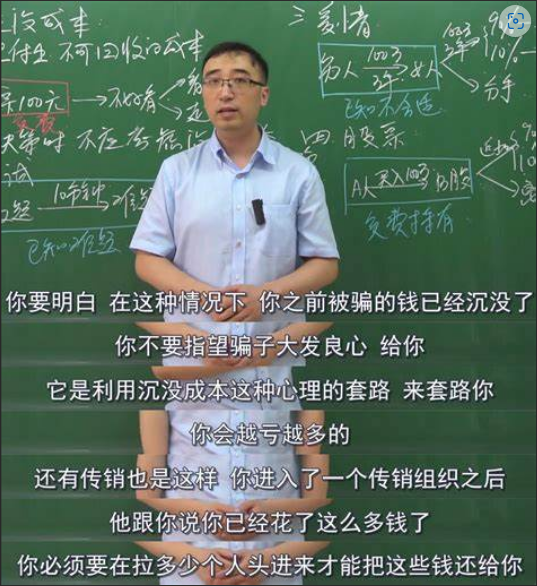 沉没成本
付出 不可回收的成本
票100元
免费
不好看
决策时 不应考虑沉
试
10分钟
难题
已知难题
三 爱情
男人 100万 2年 女人
100万
2年
9%
10%
分手
已知不合适
四 股票
A人 买入100万 B股
免费持有
你要明白 在这种情况下 你之前被骗的钱已经沉没了
你不要指望骗子大发良心 给你
它是利用沉没成本这种心理的套路 来套路你
你会越亏越多的
还有传销也是这样 你进入了一个传销组织之后
他跟你说你已经花了这么多钱了
你必须要在拉多少个人头进来才能把这些钱还给你